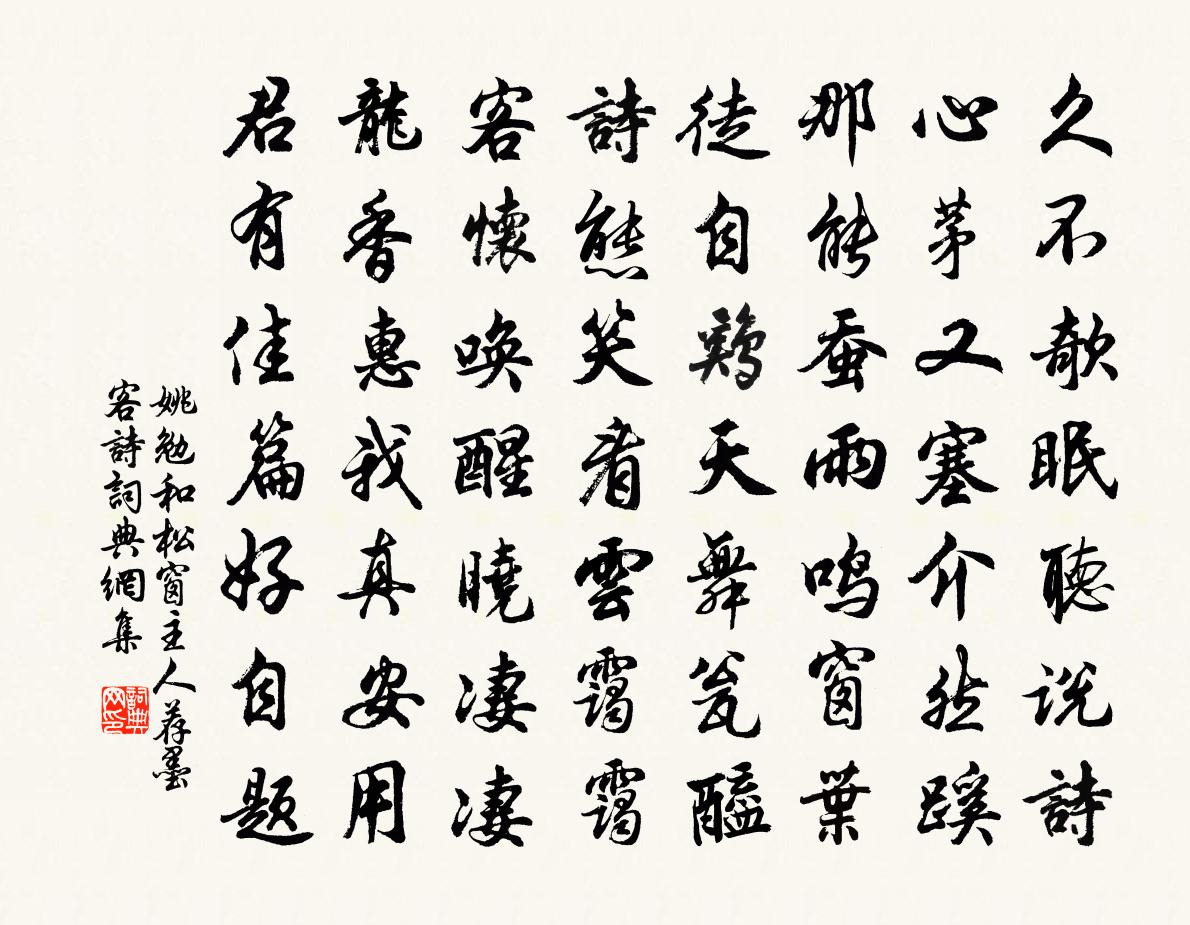 久不欹眠聽説詩
心茅又塞介然蹊
那能蚕雨鳴窗葉
徒自鷄天舞瓮醯
詩態笑看雲靄靄
客懷喚醒曉凄凄
龍香惠我真安用
君有佳篇好自題
姚勉和松窗主人荐墨
客詩詞典網集
詞典网印